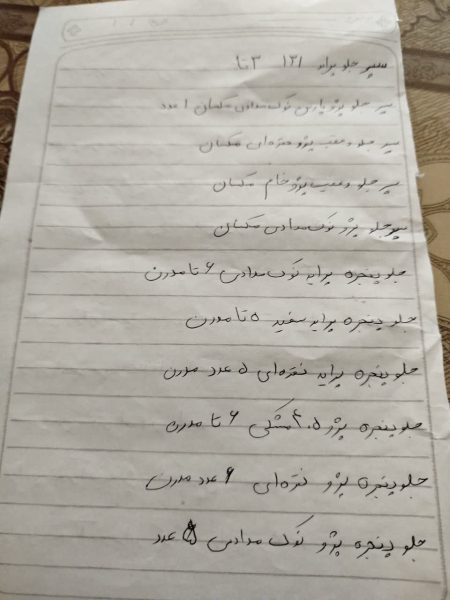 سپر جلو پراید ۱۳۱ ۳ تا
سپر جلو پژو پارس نوک مدادی مکسان ۱ عدد
سپر جلو و عقب پژو نقره‌ای مکسان
سپر جلو و عقب پژو خام مکسان
سپر جلو پژو نوک مدادی مکسان
جلو پنجره پراید نوک مدادی ۶ تا مدرن
جلو پنجره پراید سفید ۵ تا مدرن
جلو پنجره پراید نقره‌ای ۵ عدد مدرن
جلو پنجره پژو ۴۰۵ مشکی ۶ تا مدرن
جلو پنجره پژو نقره‌ای ۶ عدد مدرن
جلو پنجره پژو نوک مدادی ۵ عدد